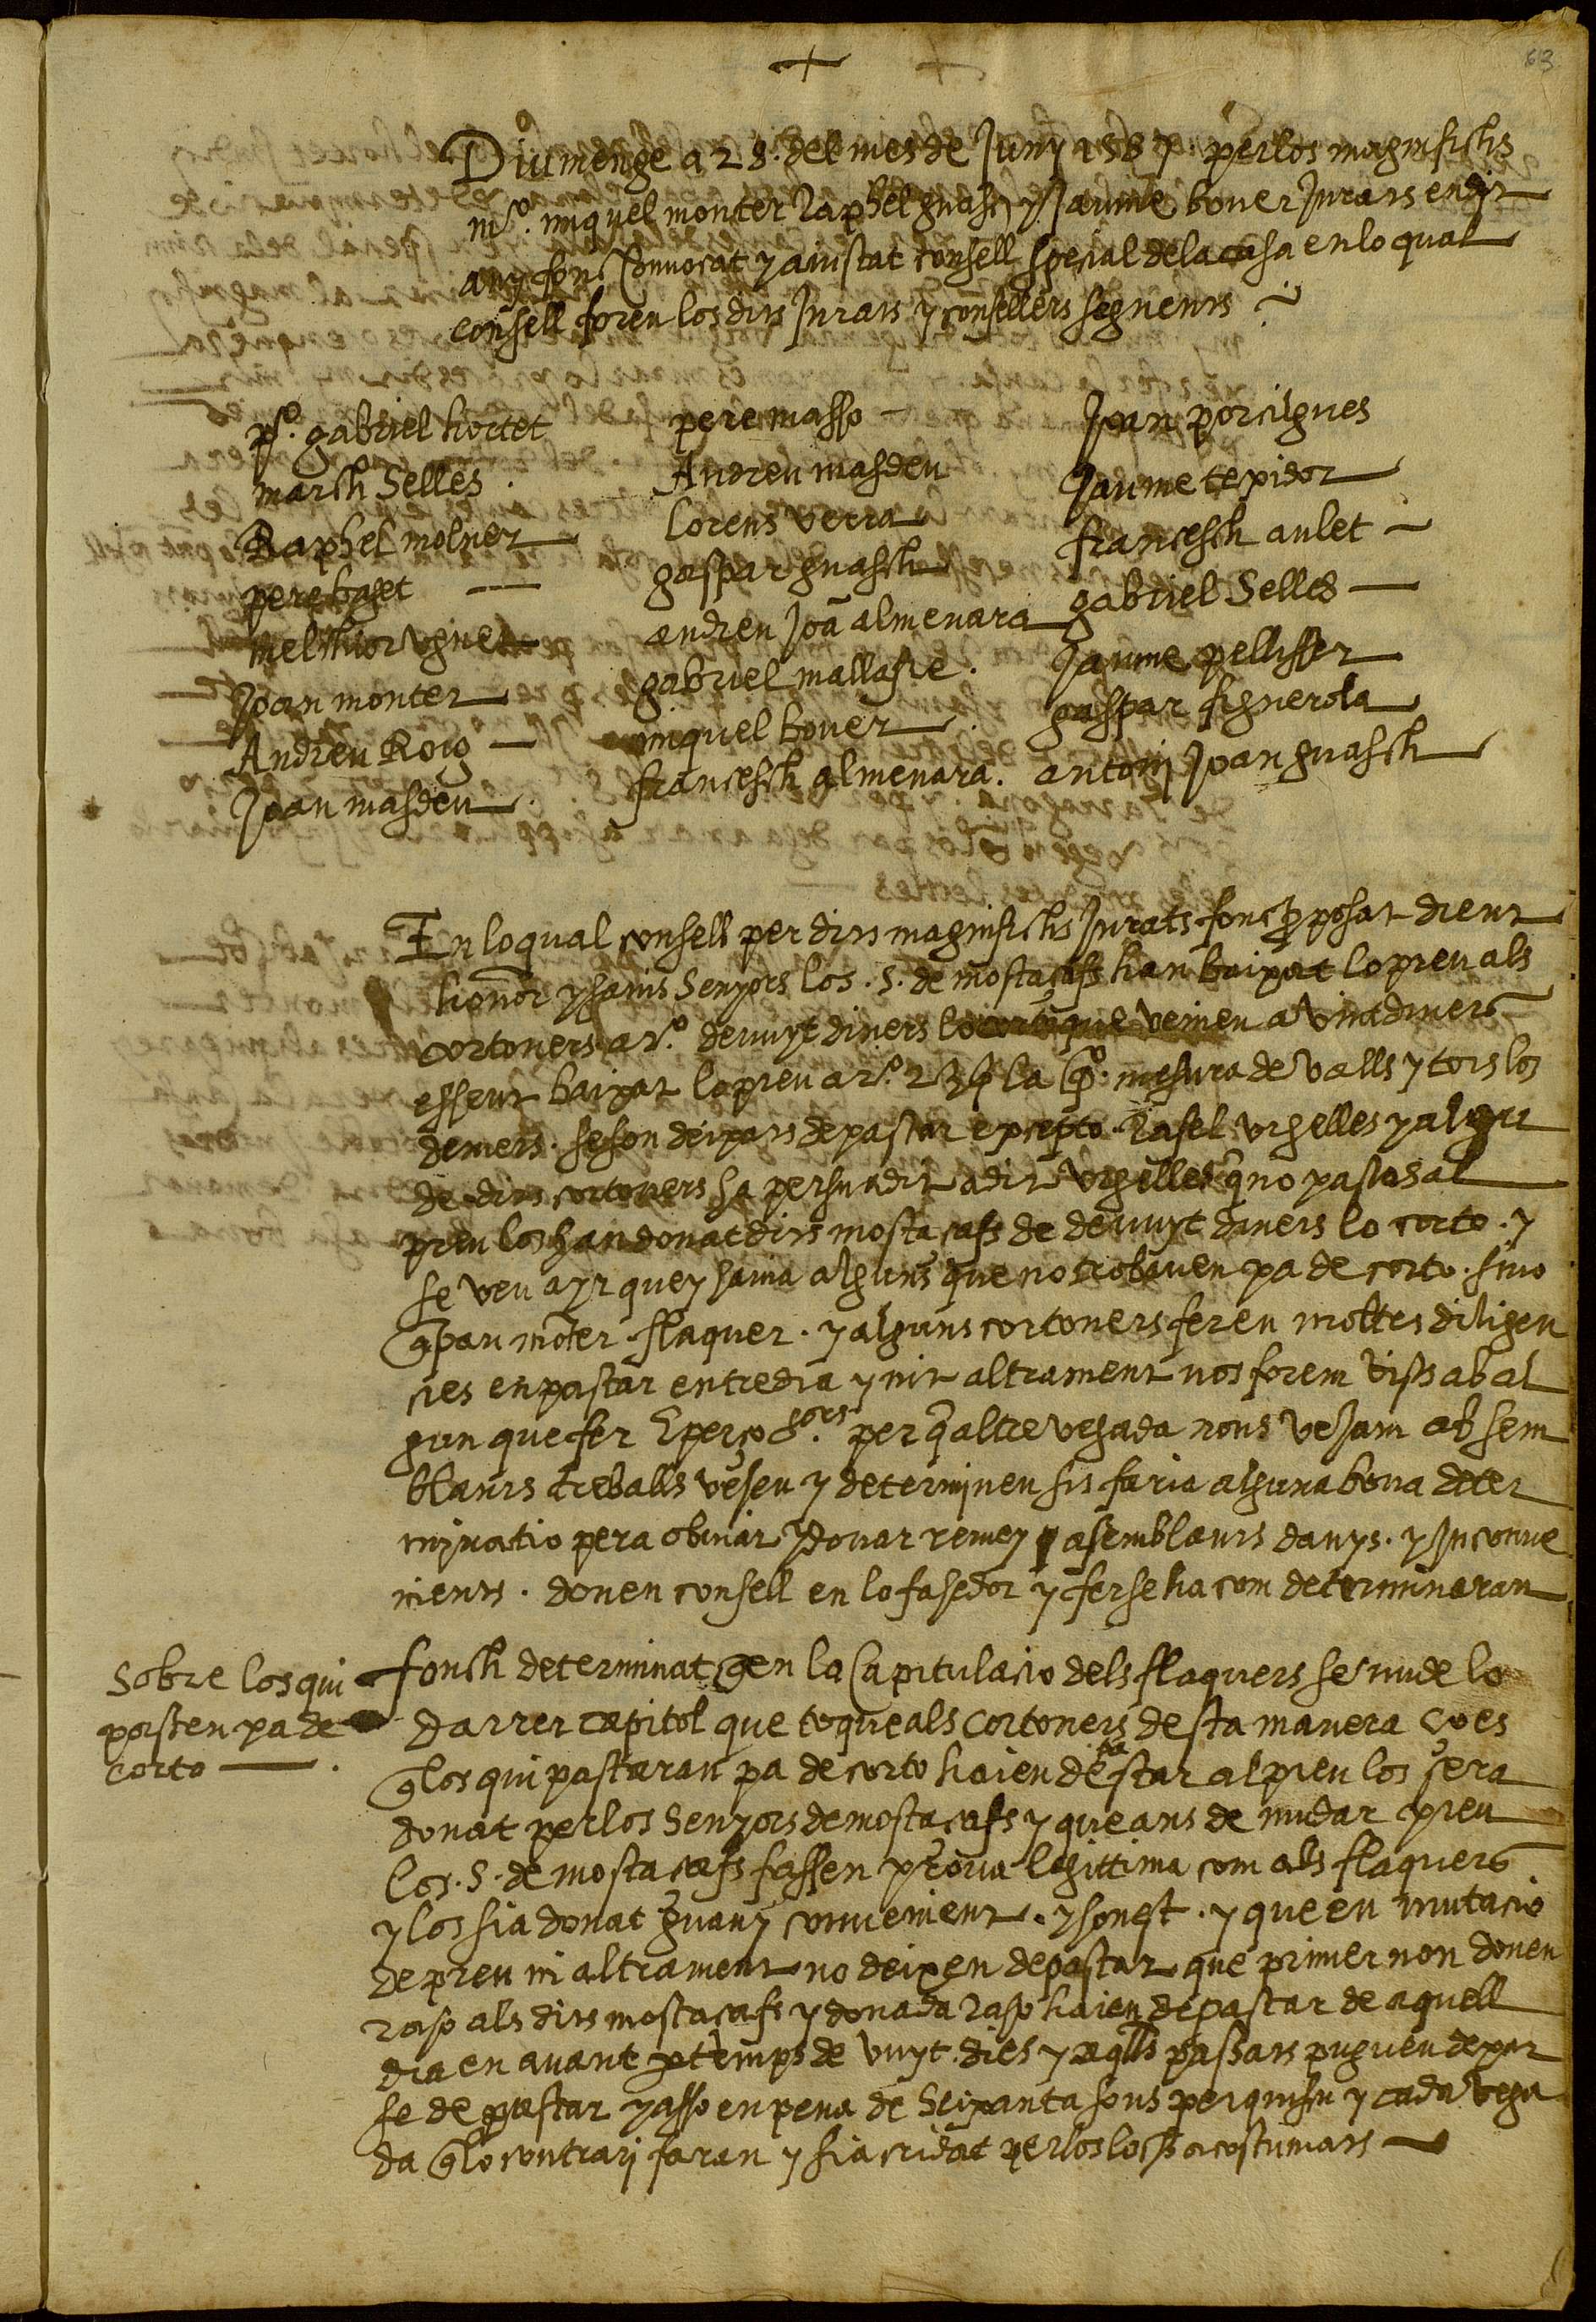 63
Diumenge a 28. del mes de Juny 1587 perlos magnifichs
mº. miquel monter Raphel guasch y Jaume bover Jurats en dit
any fonc convocat y aiustat consell special dela casa enlo qual
consell foren los dits Jurats y consellers seguents
pº. gabriel hortet
march Selles
Raphel molner
pere baget
melchior uginet
Joan monter
Andreu Roig
Joan masdeu
pere masso
Andreu masdeu
lorens verra
gaspar guasch
andreu Joã almenara
gabriel mallafre
miquel bover
francesch almenara
Joan porcilgues
Jaume tepidor
francesch aulet
gabriel Selles
Jaume pellisser
gaspar figuerola
antonj Joan guasch
En lo qual consell per dits magnifichs Jurats fonc pposat dient
honor y savis Senyors los .S. de mostaçafs han baixat lo preu als
cortoners a rº. devuyt diners lo corto que venien a vint diners
essent baixat lo preu a rº. la qº. mesura de valls y tots los
demes. seson deixats de pastar excepto Rafel vrgelles y algu
de dits cortoners ha persuadit a dit vrgelles q̃ no pastas al
preu los han donat dits mostaçafs de devuyt diners lo corto. y
se veu ayr que y havia alguns que no trobaven pa de corto. sino
q̃ pau mõter flaquer. y alguns cortoners feren moltes diligen
cies en pastar entre dia y nit altrament nos forem vists ab al
gun que fer E perço Sors. per q̃ altre vegada nons vejam ab sem
blants treballs vejen y determjnen sis faria alguna bona deter
mjnatio pera obviar y donar remey a semblants danys. y Inconve
nients. donen consell en lo fasedor y ferse ha com determinaran
Sobre los qui
pasten pa de
corto
fonch determinat q̃ en la Capitulacio dels flaquers se mude lo
darrer capitol que toque als cortoners desta manera ço es
q̃ los qui pastaran pa de corto haien de pastar al preu los sera
donat perlos Senyors de mostaçafs y que ans de mudar preu
los .S. de mostaçafs fassen prova legittima com als flaquers
y los sia donat guany convenient. y honest. y que en mutacio
de preu ni altrament no deixen de pastar que primer non donen
raho als dits mostaçafs y donada raho haien de pastar de aquell
dia en avant p temps de vuyt dies y aqlls passats puguen dexar
se de pastar y asso en pena de Seixanta sous per quisvu y cada vega
da q̃ lo contrarj faran y sia cridat perlos lochs acostumats